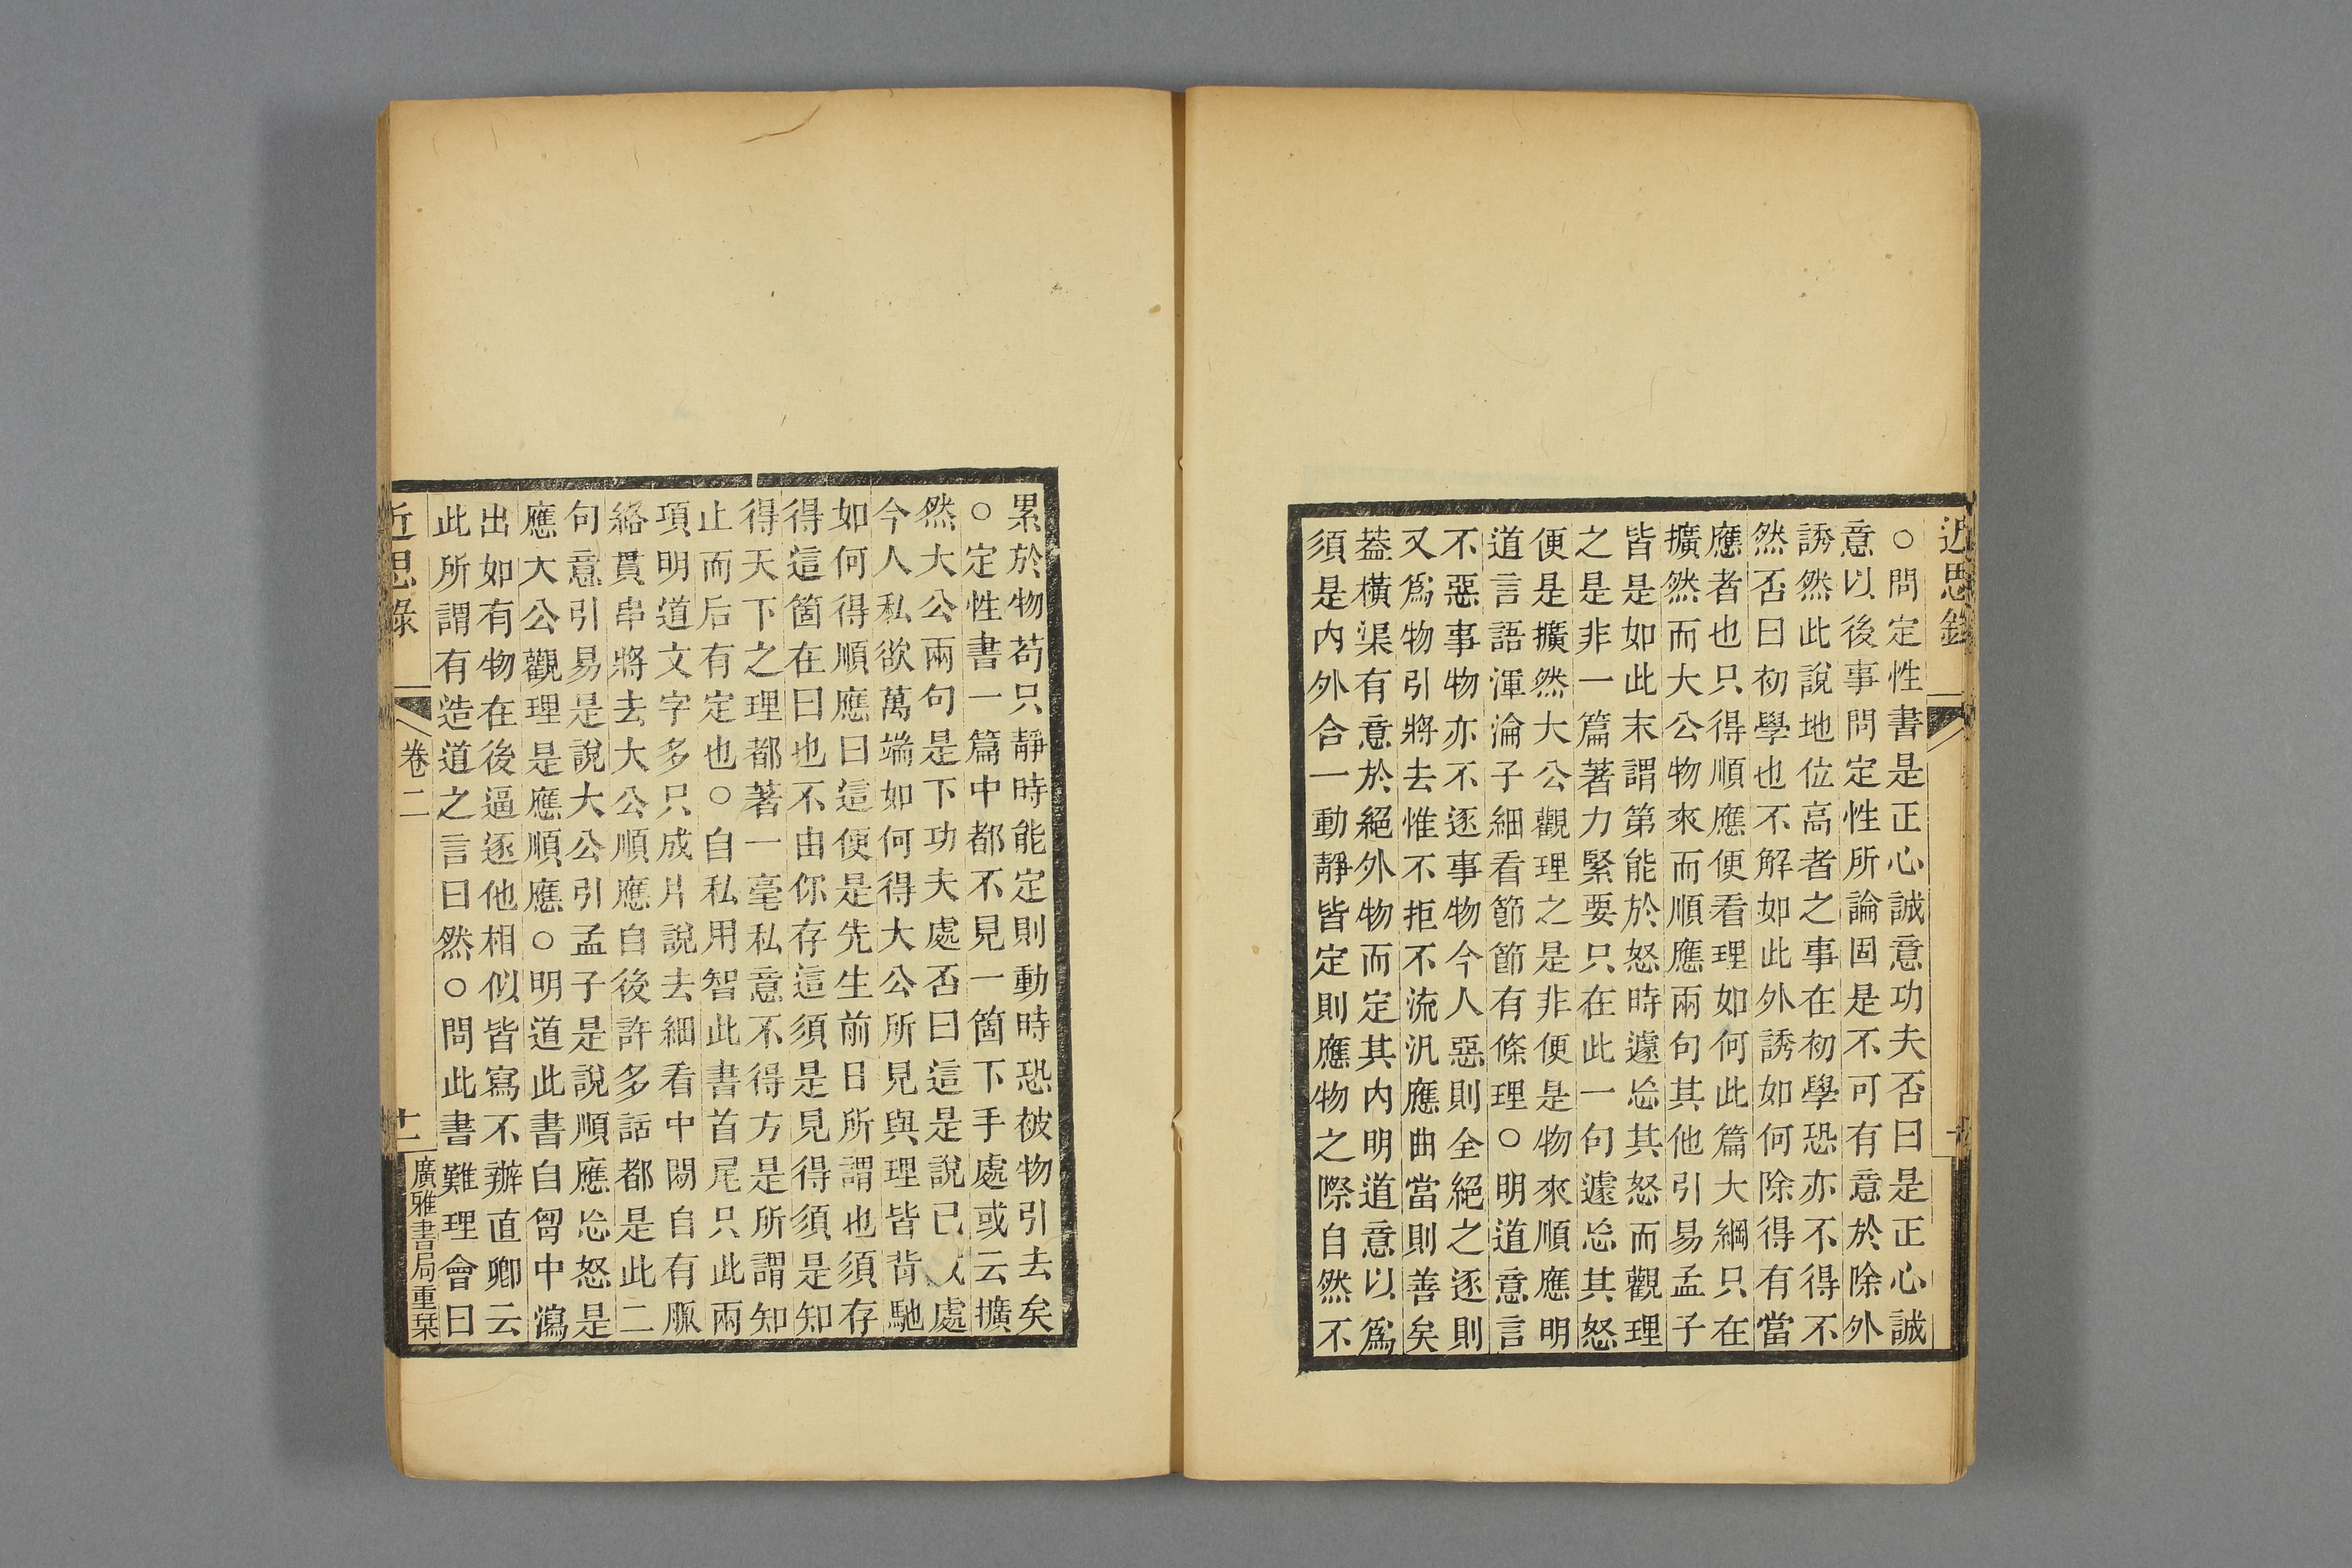 近思錄
○問定性書是正心誠意功夫否曰是正心誠
意以後事問定性所論固是不可有意於除外
誘然此說地位高者之事在初學恐亦不得不
然否曰初學也不解如此外誘如何除得有當
應者也只得順應便看理如何此篇大綱只在
擴然而大公物來而順應兩句其他引易孟子
皆是如此末謂第能於怒時遽忘其怒而觀理
之是非一篇著力緊要只在此一句遽忘其怒
便是擴然大公觀理之是非便是物來順應明
道言語渾淪子細看節節有條理○明道意言
不惡事物亦不逐事物今人惡則全絕之逐則
又爲物引將去惟不拒不流汎應曲當則善矣
蓋橫渠有意於絕外物而定其內明道意以爲
須是內外合一動靜皆定則應物之際自然不
累於物苟只靜時能定則動時恐被物引去矣
○定性書一篇中都不見一箇下手處或云擴
然大公兩句是下功夫處否曰這是說已處
今人私欲萬端如何得大公所見與理皆背馳
如何得順應曰這便是先生前日所謂也須存
得這箇在曰也不由你存這須是見得須是知
得天下之理都著一毫私意不得方是所謂知
止而后有定也○自私用智此書首尾只此兩
項明道文字多只成片說去細看中閒自有脈
絡貫串將去大公順應自後許多話都是此二
句意引易是說大公引孟子是說順應忘怒是
應大公觀理是應順應○明道此書自胷中瀉
出如有物在後逼逐他相似皆寫不辦直卿云
此所謂有造道之言曰然○問此書難理會曰
近思錄
卷二
十一
廣雅書局重栞